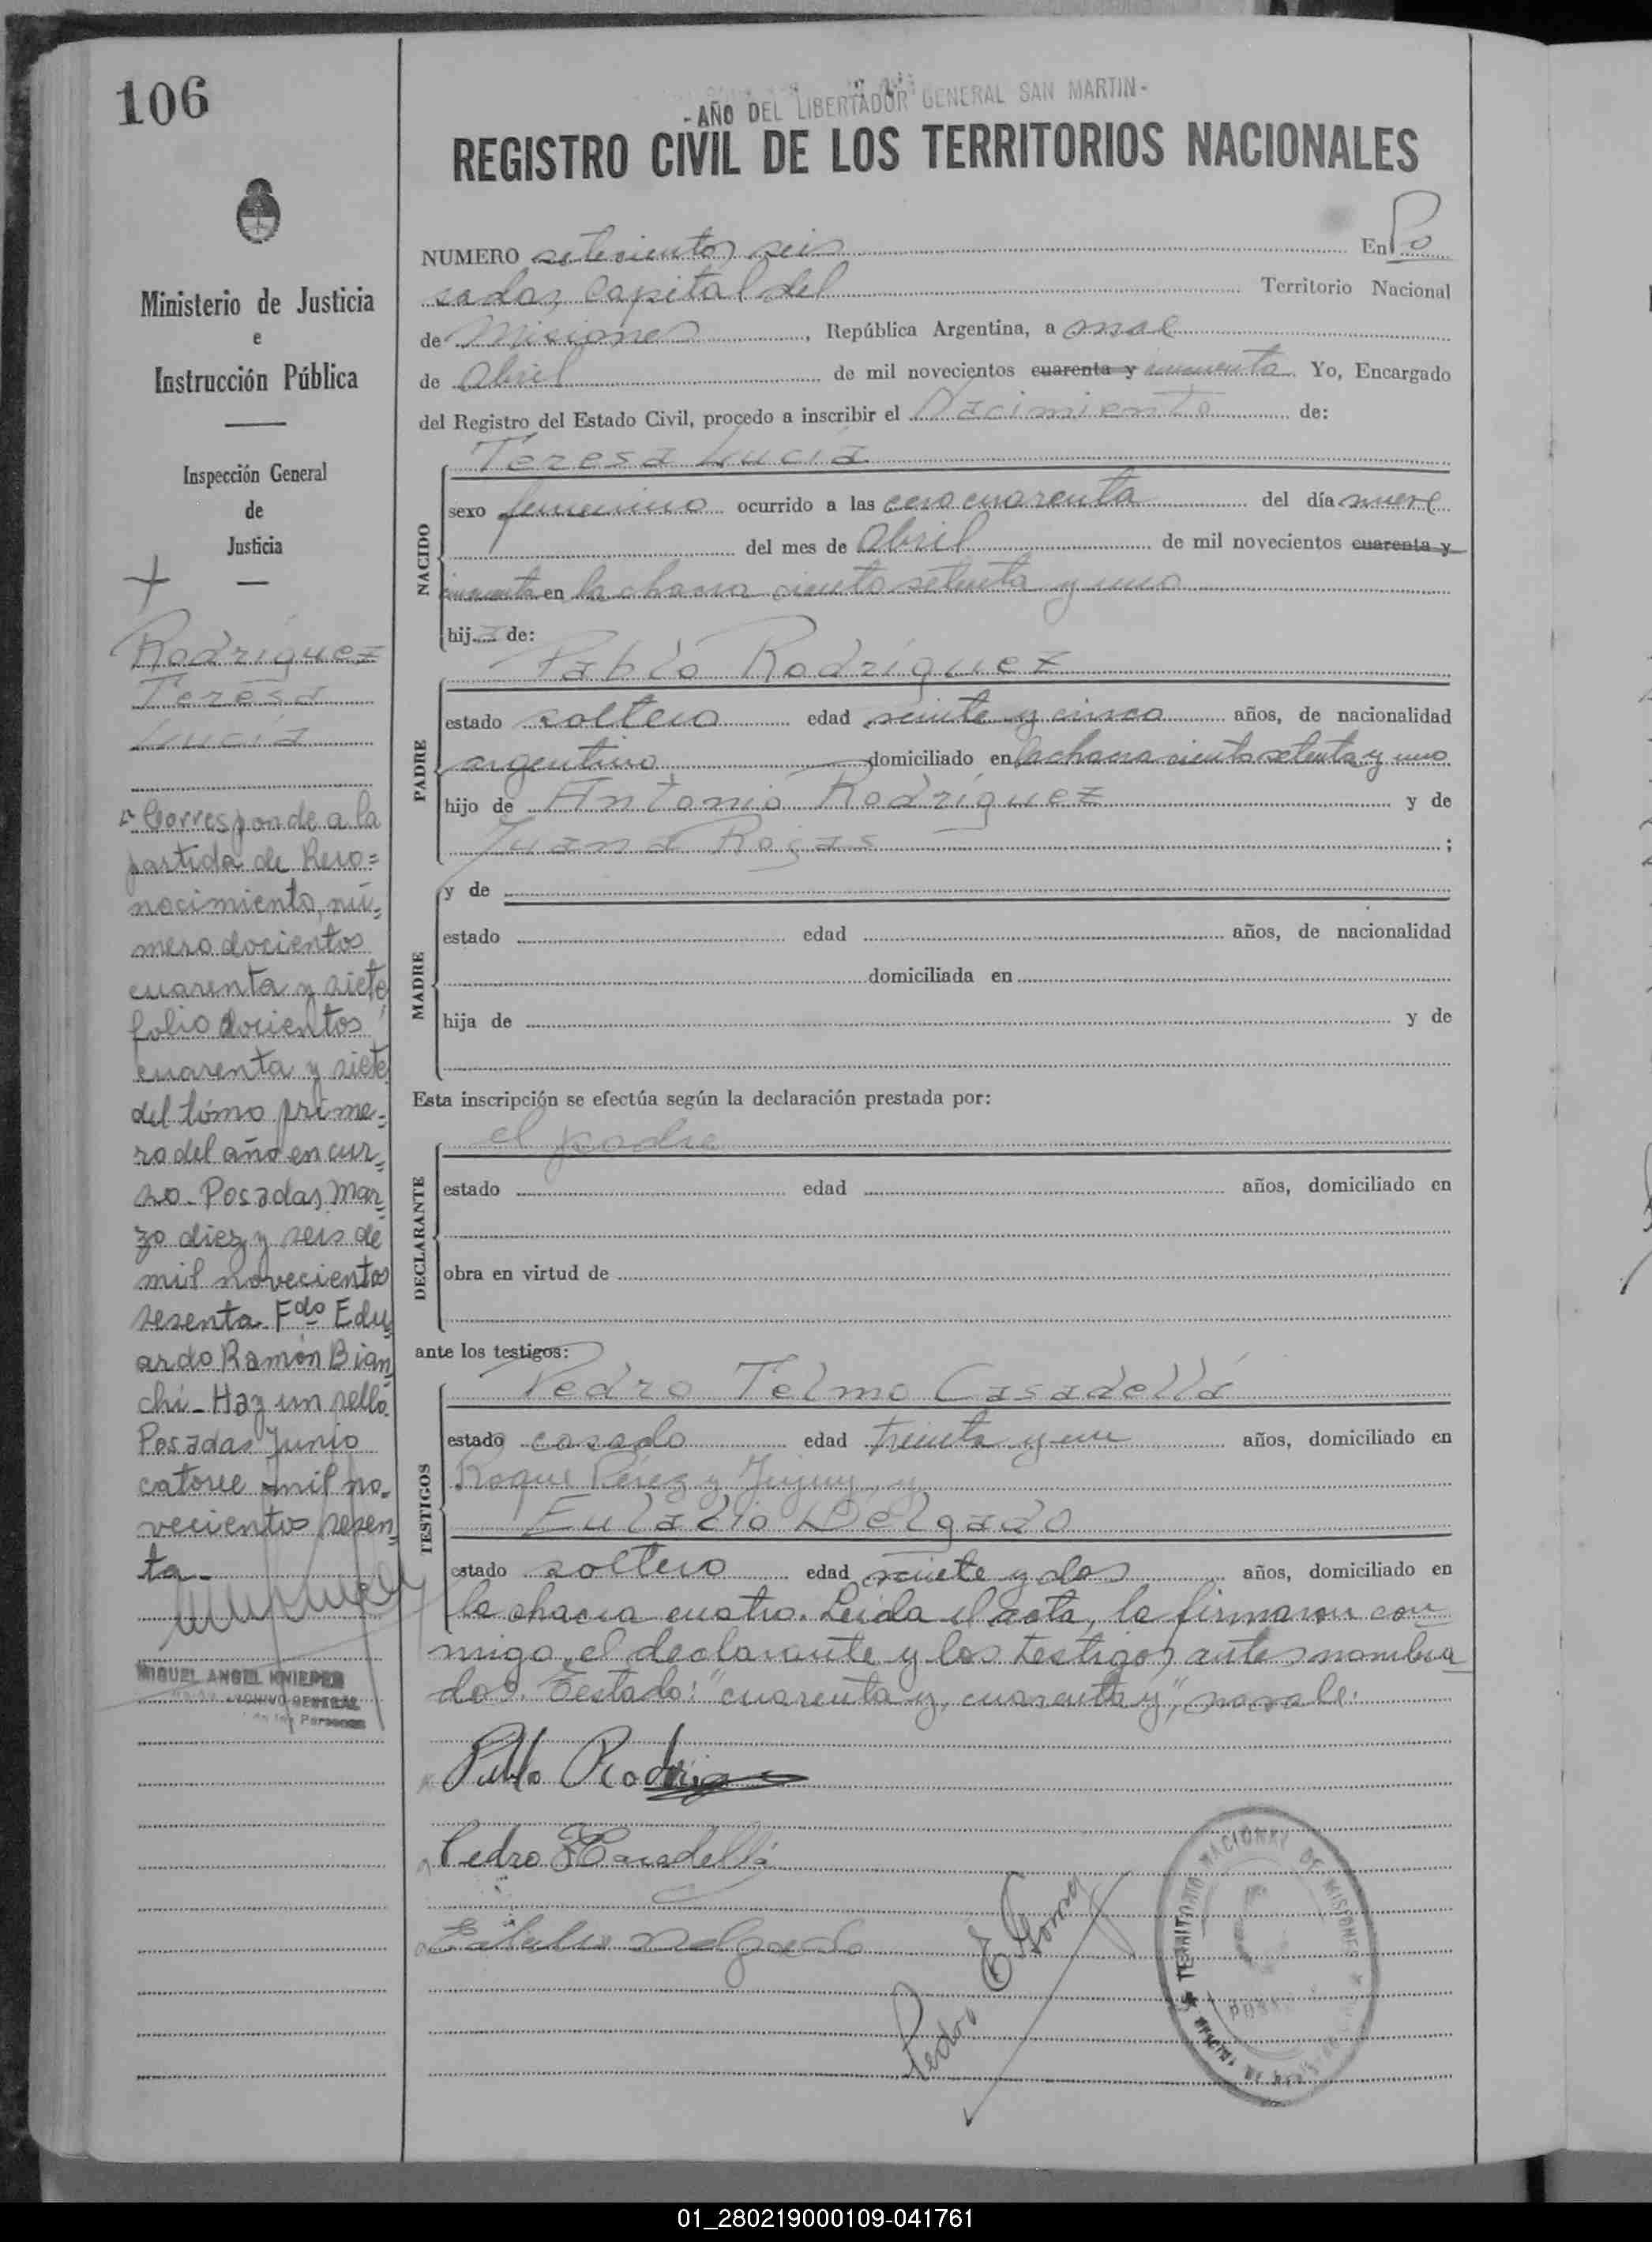 106
- AÑO DEL LIBERTADOR GENERAL SAN MARTIN -
REGISTRO CIVIL DE LOS TERRITORIOS NACIONALES
Ministerio de Justicia
e
Instrucción Pública
Inspección General
de
Justicia
Rodríguez
Teresa
Lucía
Corresponde a la
partida de Reco=
nocimiento, nú=
mero docientos
cuarenta y siete
folio docientos
cuarenta y siete
del tómo prime=
ro del año en cur=
so - Posadas, Mar
zo diez y seis de
mil novecientos
sesenta. Fdo Edu
ardo Ramón Bian
chi - Hay un sello.
Posadas Junio
catorce mil no-
vecientos sesen
ta-
MIGUEL ANGEL
ARCHIVO GENERAL
de las Personas
NUMERO setecientos seis En Po
sadas, Capital del Territorio Nacional
de Misiones, República Argentina, a once
de Abril de mil novecientos cuarenta y cincuenta. Yo, Encargado
del Registro del Estado Civil, procedo a inscribir el Nacimiento de:
NACIDO
Teresa Lucía
sexo femenino ocurrido a las cero cuarenta del día nueve
del mes de Abril de mil novecientos cuarenta y
cincuenta en la chacra ciento setenta y uno
hija de:
PADRE
Pablo Rodríguez
estado soltero edad veinte y cinco años, de nacionalidad
argentino domiciliado en la chacra ciento setenta y uno
hijo de Antonio Rodríguez y de
Juana Rojas ;
MADRE
y de
estado edad años, de nacionalidad
domiciliada en
hija de y de
Esta inscripción se efectúa según la declaración prestada por:
DECLARANTE
el padre
estado edad años, domiciliado en
obra en virtud de
ante los testigos:
TESTIGOS
Pedro Telmo Casadellá
estado casado edad treinta y un años, domiciliado en
Roque Pérez y Jujuy, y
Eulalio Delgado
estado soltero edad veinte y dos años, domiciliado en
la chacra cuatro. Leída el acta, la firmaron con
migo, el declarante y los testigos antes nombra
dos. Testado: "cuarenta y, cuarenta y", no vale.
Pablo Rodrig
Pedro T Casadellá
Eulalio Delgado
Pedro E Gomez
TERRITORIO NACIONAL DE MISIONES
01_280219000109-041761